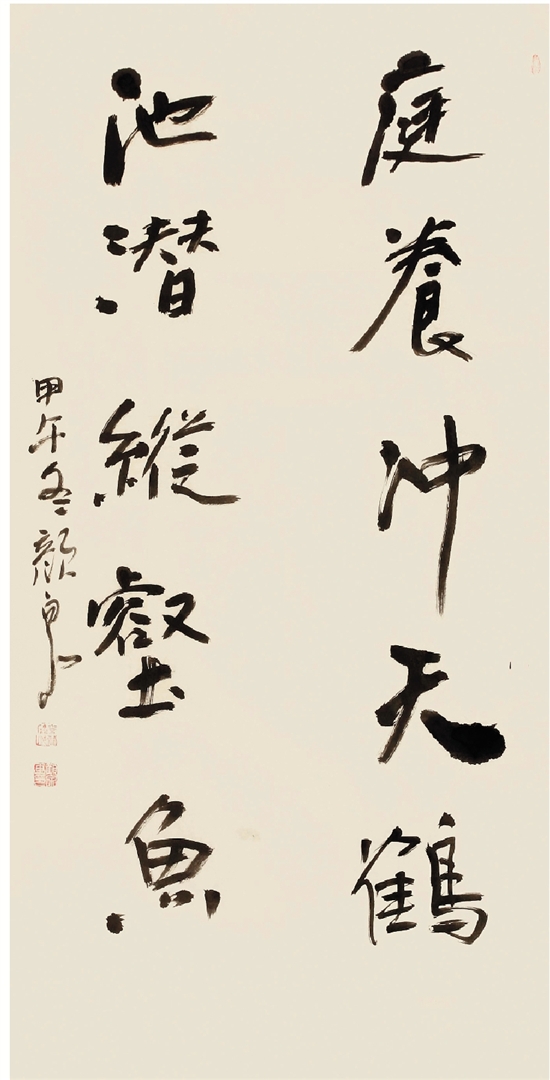 庭養沖天鶴
池潛縱壑魚
甲午冬顏泉